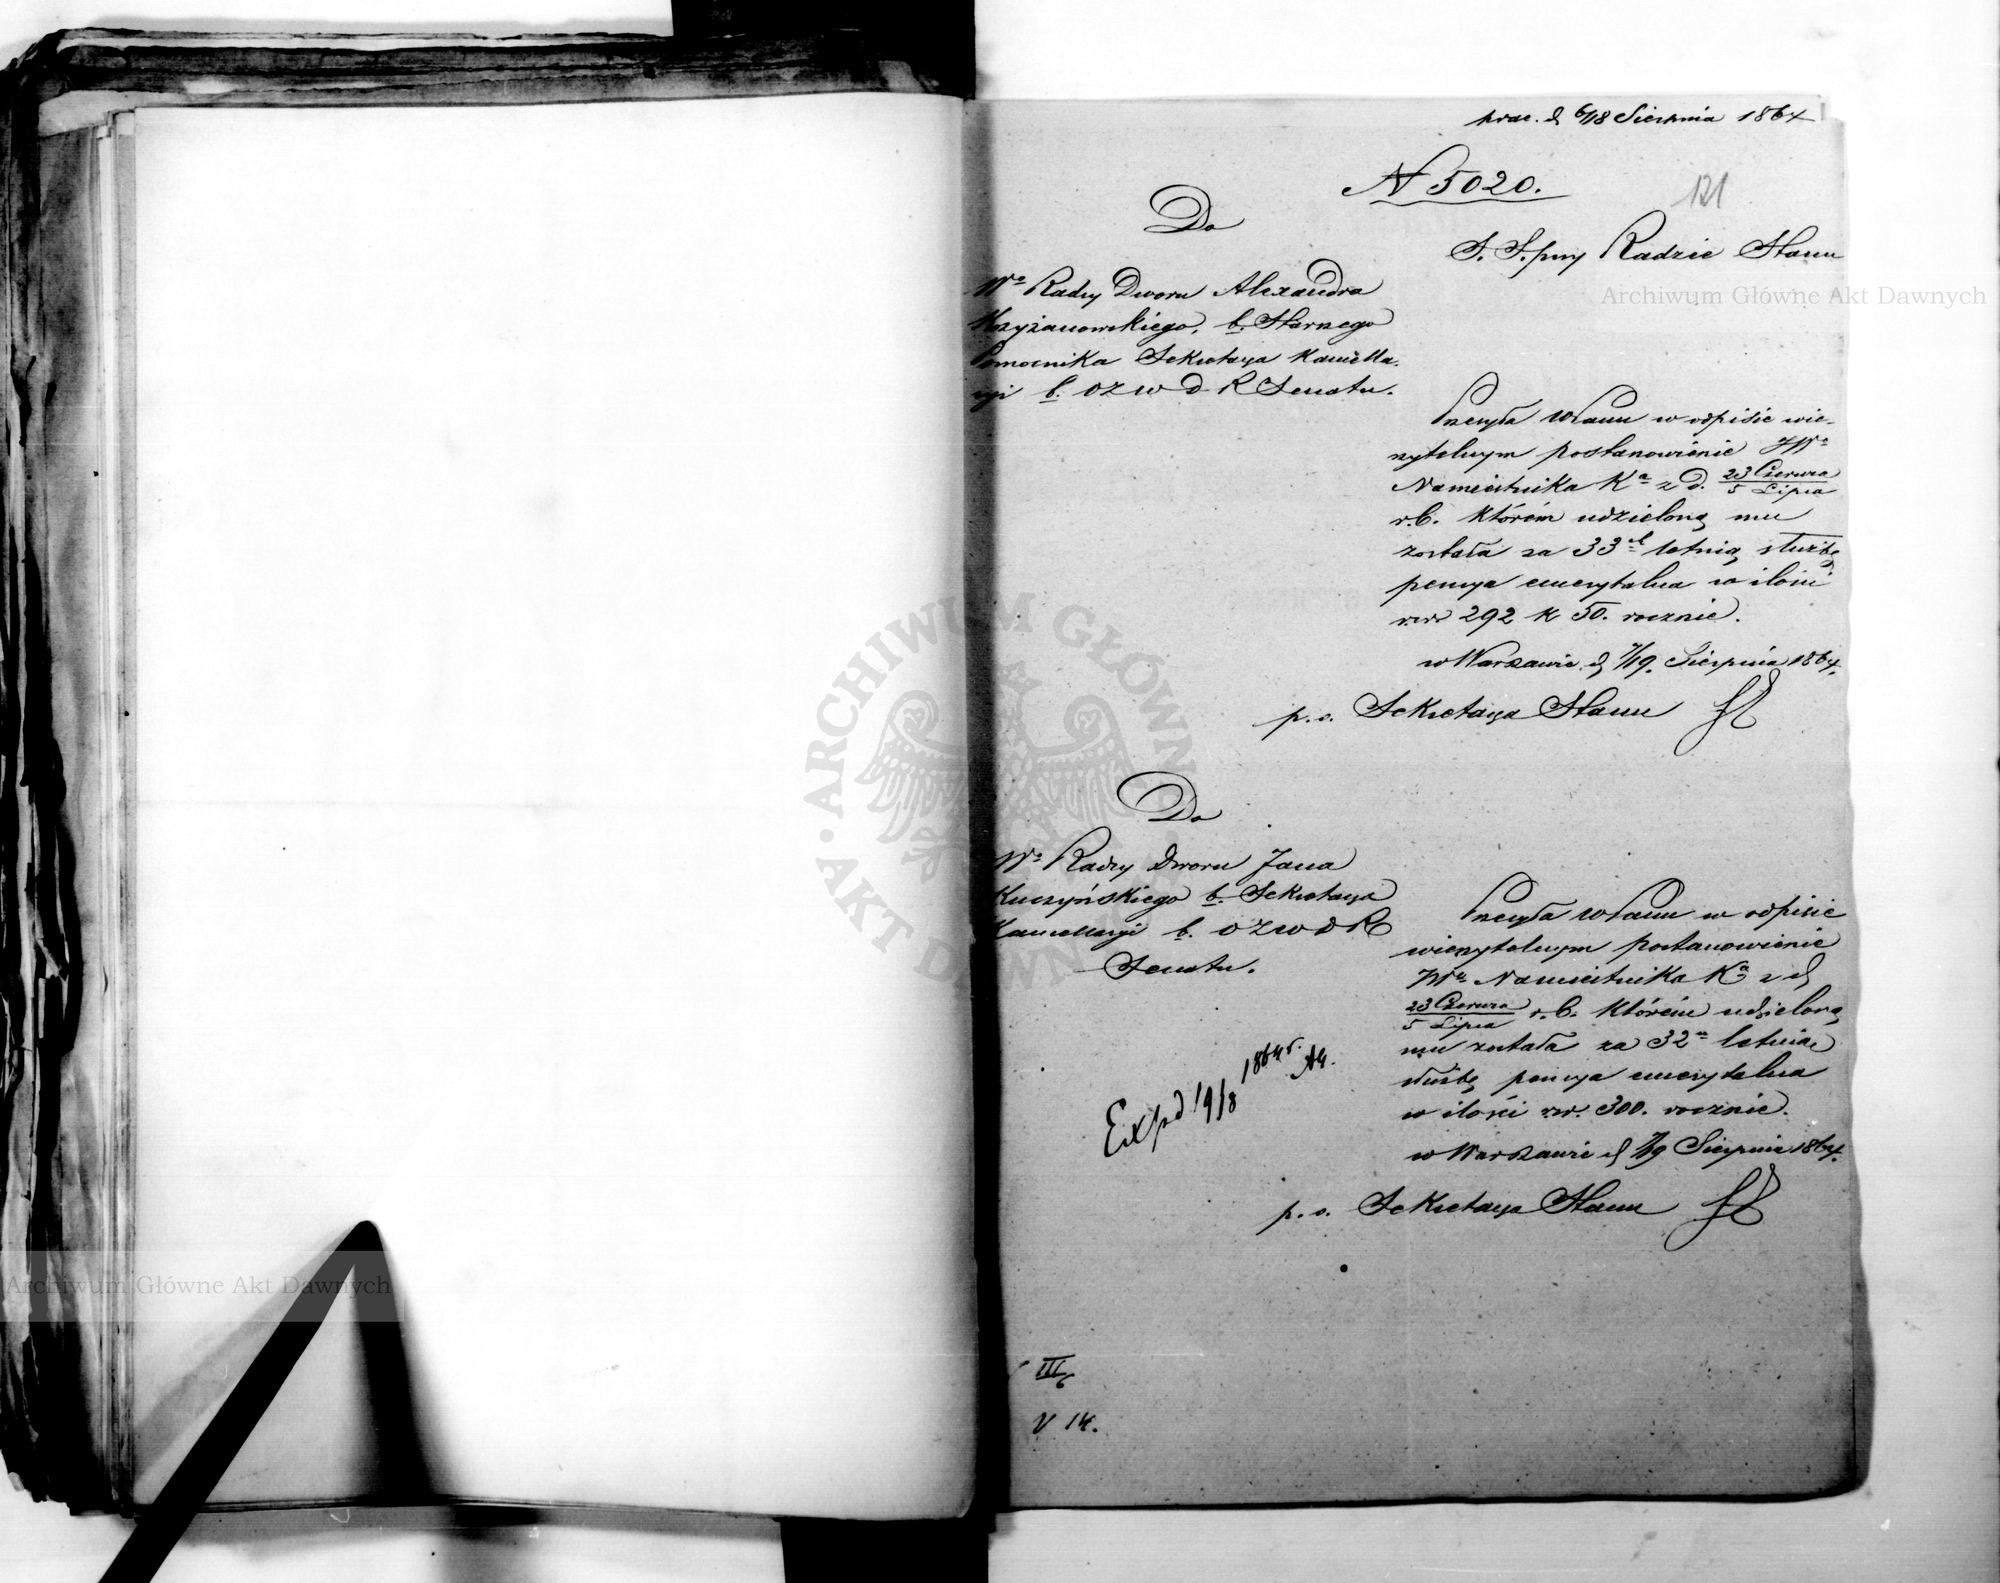 prac. d 6/18 Sierpnia 1864
N 5020.
121
S. S. przy Radzie Stanu
Do
Wo Radcy Dworu Alexandra
Krzyżanowskiego, b. Starszego
Pomocnika Sekretarza Kancella-
ryi b. O Z w d R Senatu.
Przesyła WPanu w odpisie wie-
rzytelnym postanowienie JWo
Namiestnika Ka z d. 23 Czerwca / 5 Lipca
r. b. którém udzieloną mu
została za 33ch letnią służbę
pensya emerytalna w ilości
rsr 292 k 50. rocznie.
w Warszawie d 7/19. Sierpnia 1864.
p. o. Sekretarza Stanu
Do
Wo Radcy Dworu Jana
Kuczyńskiego b. Sekretarza
Kancellaryi b. O Z w d R
Senatu.
Przesyła WPanu w odpisie
wierzytelnym postanowienie
JWo Namiestnika Ka z d
23 Czerwca / 5 Lipca r. b. którém udzieloną
mu została za 32u letnią
służbę pensya emerytalna
w ilości rsr. 300. rocznie.
w Warszawie d 7/19 Sierpnia 1864.
p. o. Sekretarza Stanu
Expd 19/8 1864 r.
III/6
V 14.
Archiwum Główne Akt Dawnych
Archiwum Główne Akt Dawnych
ARCHIWUM GŁÓWNE AKT DAWNYCH